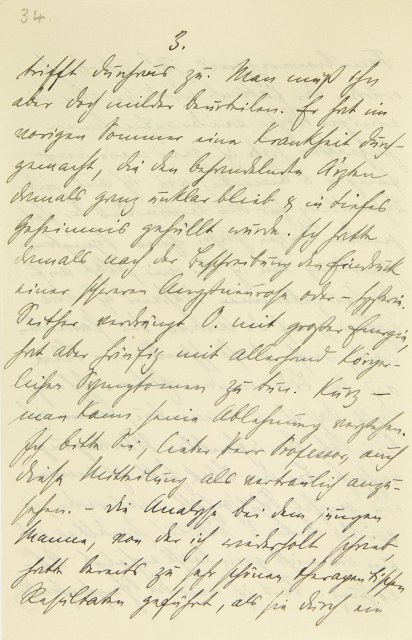 34
3.
trifft durchaus zu. Man muß ihn
aber doch milder beurteilen. Er hat im
vorigen Sommer eine Krankheit durch-
gemacht, die den behandelnden Ärzten
damals ganz unklar blieb & in tiefes
Geheimnis gehüllt wurde. Ich hatte
damals nach der Beschreibung den Eindruck
einer schweren Angstneurose oder – Hysterie.
Seither verdrängt O. mit großer Energie,
hat aber häufig mit allerhand körper-
lichen Symptomen zu tun. Kurz –
man kann seine Ablehnung verstehen.
Ich bitte Sie, lieber Herr Professor, auch
diese Mitteilung als vertraulich anzu-
sehen. – Die Analyse bei dem jungen
Manne, von der ich wiederholt schrieb,
hatte bereits zu sehr schönen therapeutischen
Resultaten geführt, als sie durch ein